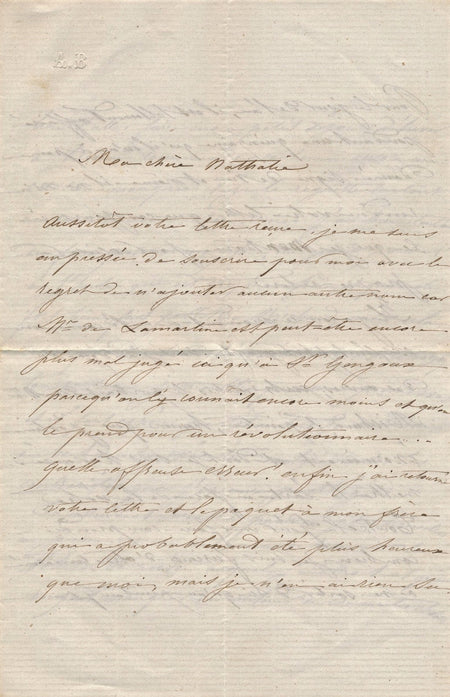 A.B
Ma chère Nathalie
aussitôt votre lettre recue, je me suis
empressée de souscrire pour moi avec le
regret de n'ajouter aucun autre nom car
Mr. de Lamartine est peut-être encore
plus mal jugé ici qu'à St Gengoux
parcequ'on l'y connait encore moins et qu'on
le prend pour un révolutionnaire...
quelle affreuse erreur! enfin j'ai retourné
votre lettre et le paquet à mon frère
qui a probablement été plus heureux
que moi, mais je n'en ai rien su